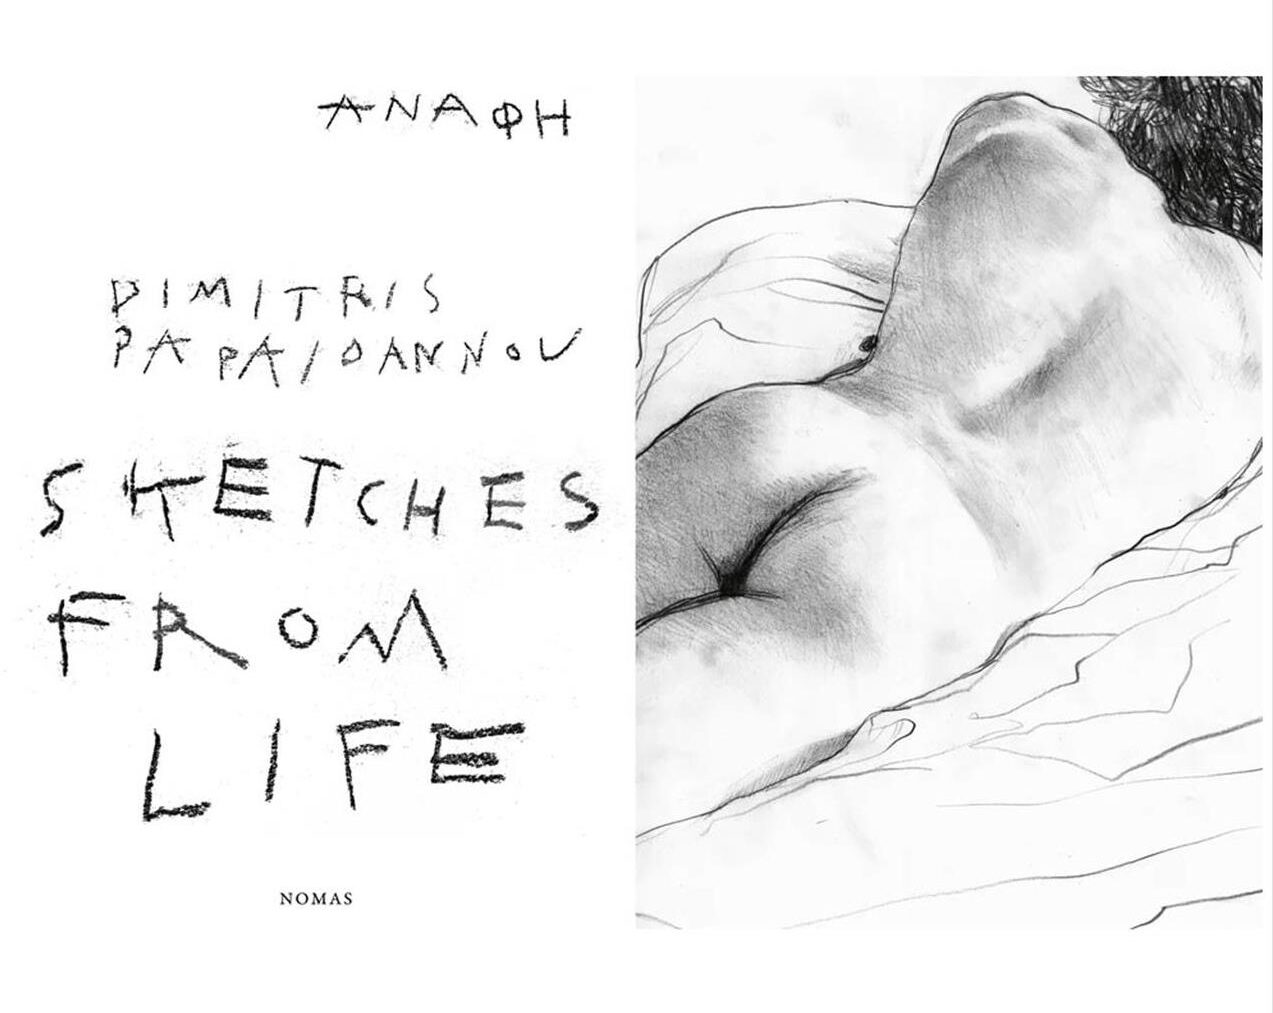 ΑΝΑΦΗ
DIMITRIS
PAPAIOANNOU
SKETCHES
FROM
LIFE
NOMAS